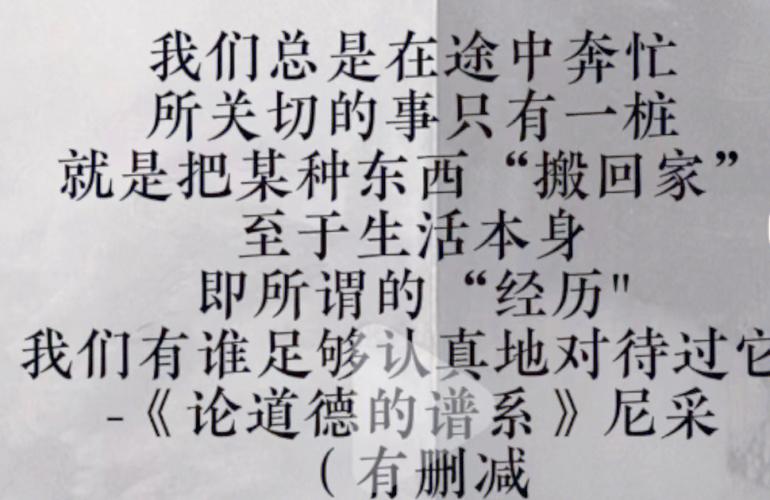 我们总是在途中奔忙
所关切的事只有一桩
就是把某种东西“搬回家”
至于生活本身
即所谓的“经历"
我们有谁足够认真地对待过它
-《论道德的谱系》尼采
（有删减